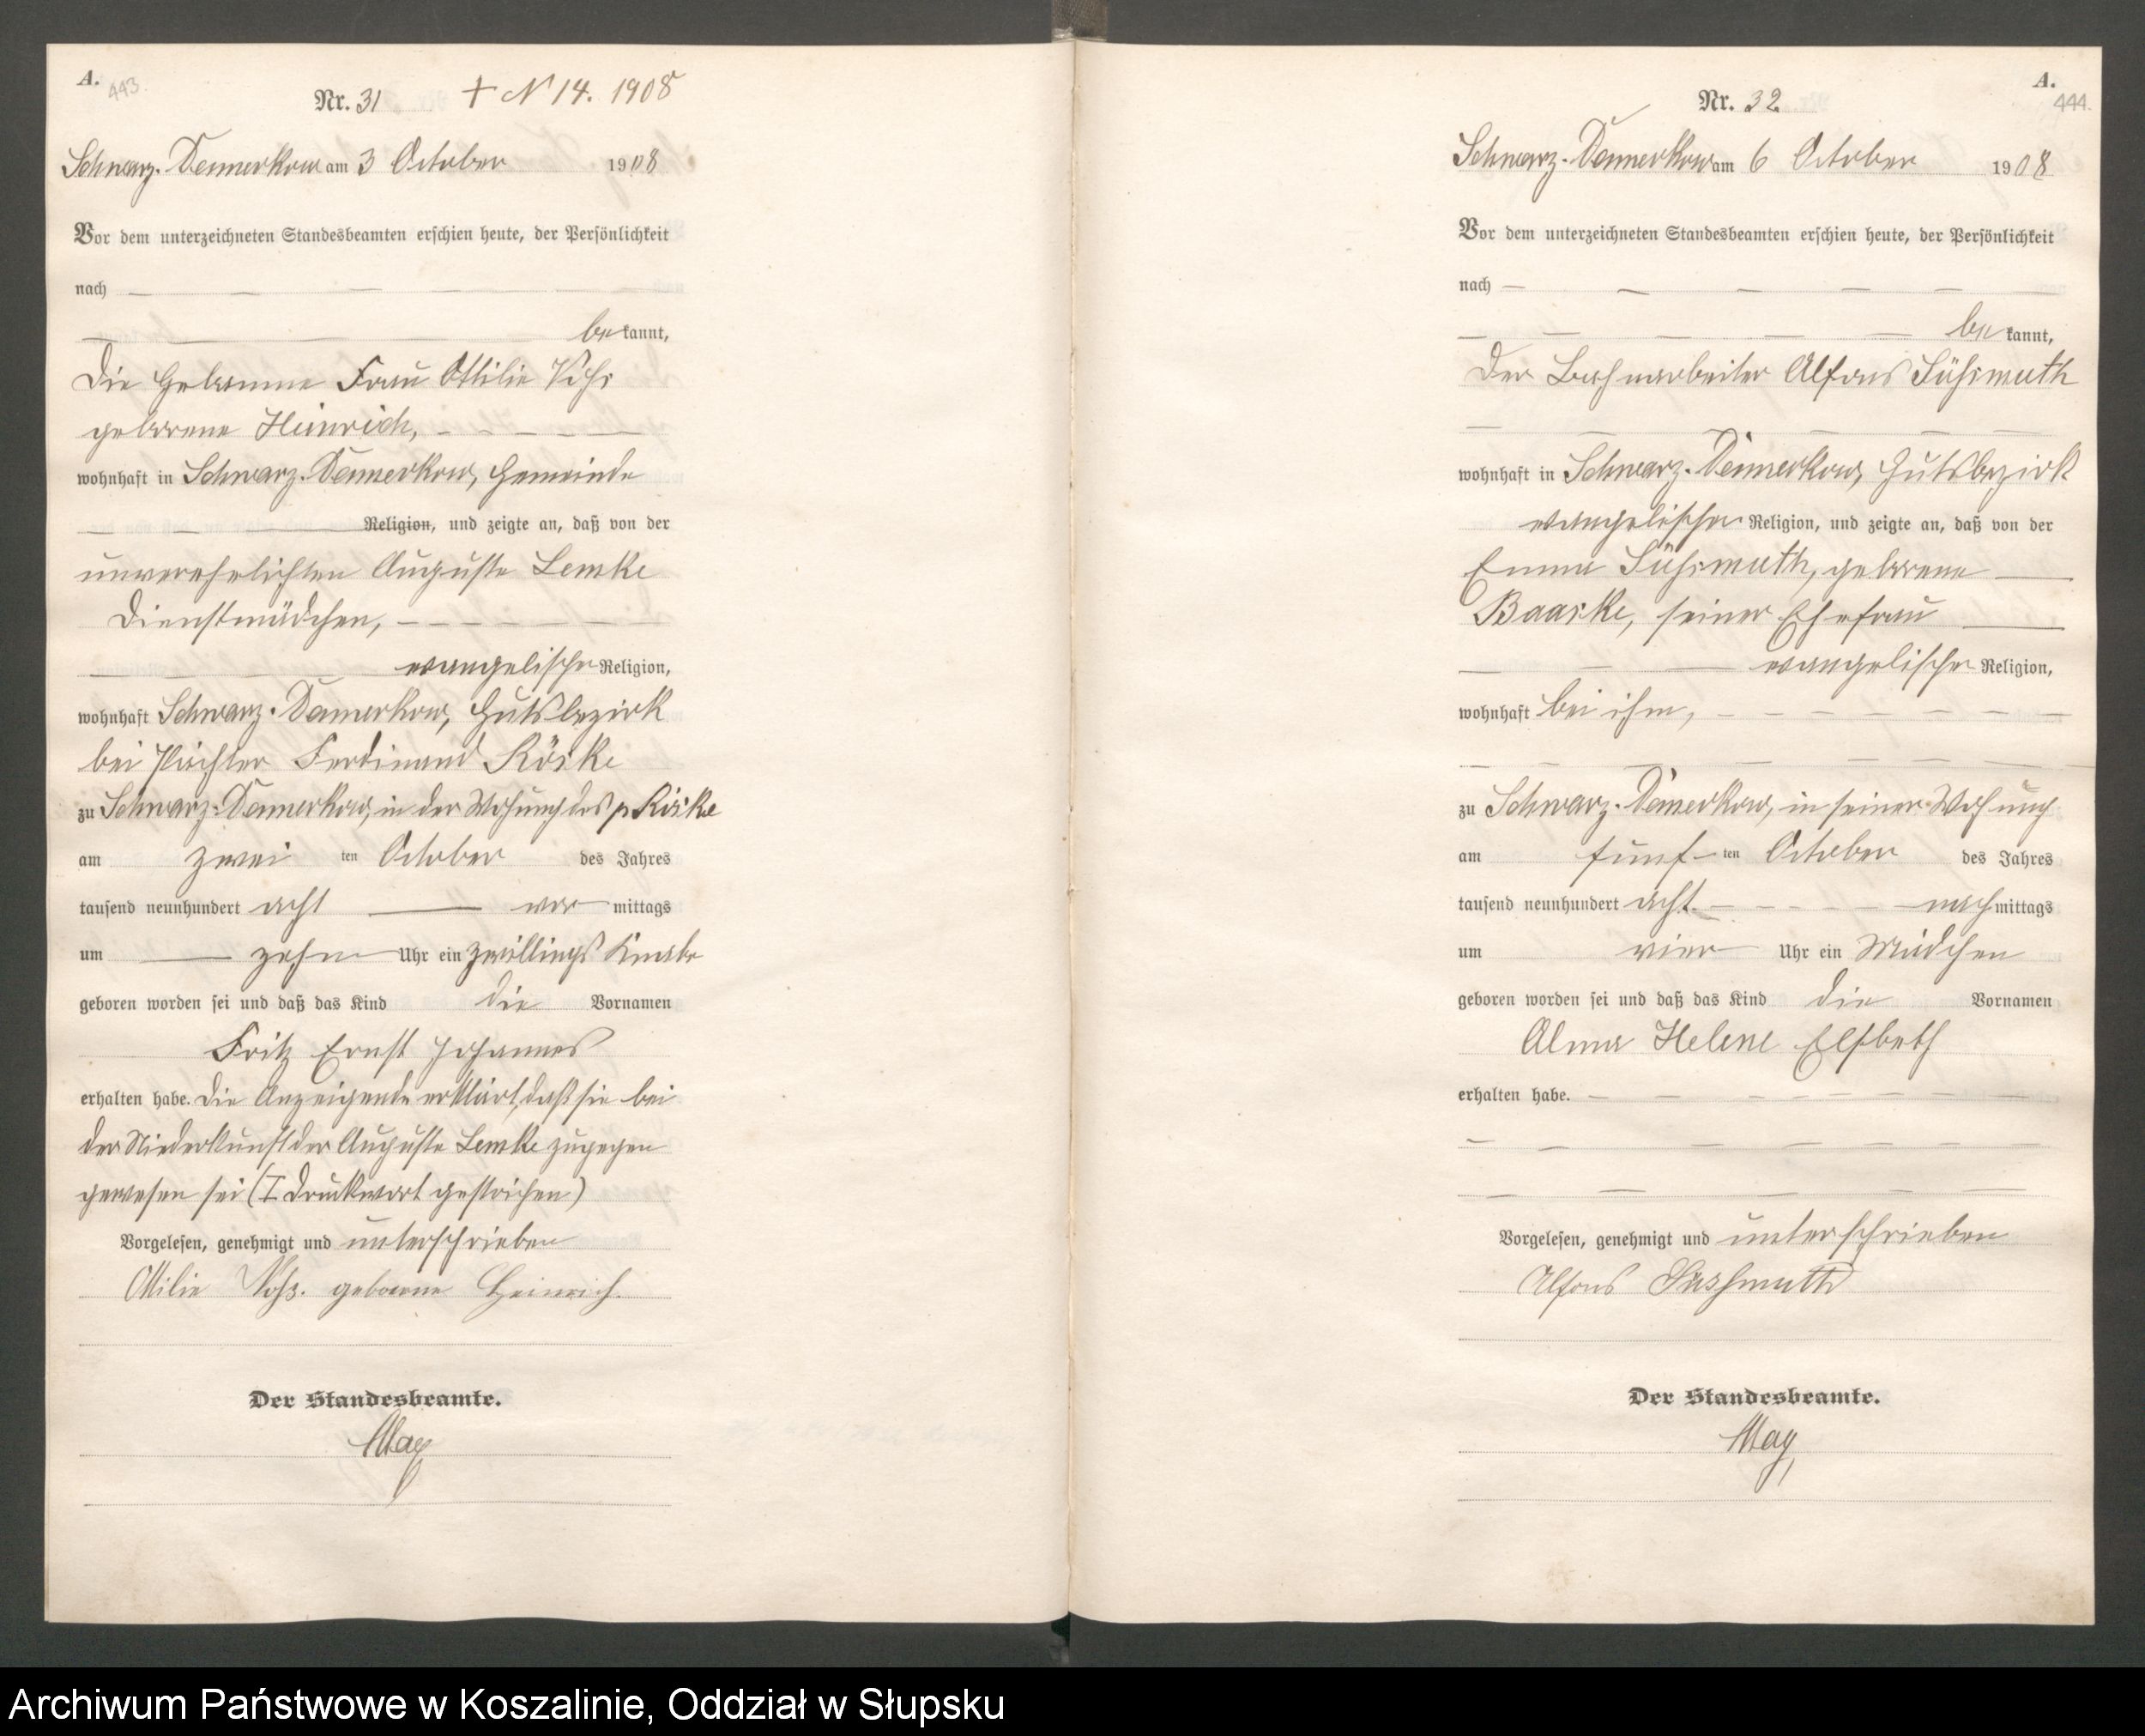 A.
443.
Nr. 31 + N 14. 1908
Schwarz-Damerkow am 3 October 1908
Vor dem unterzeichneten Standesbeamten erschien heute, der Persönlichkeit
nach
be kannt,
die Hebamme Frau Ottilie Vohs
geborene Heinrich,
wohnhaft in Schwarz-Damerkow, Gemeinde
Religion, und zeigte an, daß von der
unverehelichten Auguste Lemke
Dienstmädchen,
evangelischer Religion,
wohnhaft Schwarz-Damerkow, Gutsbezirk
bei Pächter Ferdinand Röske
zu Schwarz-Damerkow, in der Wohnung des p Röske
am zwei ten October des Jahres
tausend neunhundert acht vor mittags
um zehn Uhr ein Zwillings Knabe
geboren worden sei und daß das Kind die Vornamen
Fritz Ernst Johannes
erhalten habe. Die Anzeigende erklärt, daß sie bei
der Niederkunft der Auguste Lemke zugegen
gewesen sei (I Druckwort gestrichen)
Vorgelesen, genehmigt und unterschrieben
Ottilie Vohs. geborene Heinrich.
Der Standesbeamte.
May
A.
444.
Nr. 32
Schwarz-Damerkow am 6 October 1908
Vor dem unterzeichneten Standesbeamten erschien heute, der Persönlichkeit
nach
be kannt,
der Bahnarbeiter Alfons Sühsmuth
wohnhaft in Schwarz-Damerkow, Gutsbezirk
evangelischer Religion, und zeigte an, daß von der
Emma Sühsmuth, geborene
Baaske, seiner Ehefrau
evangelischer Religion,
wohnhaft bei ihm,
zu Schwarz-Damerkow, in seiner Wohnung
am fünf ten October des Jahres
tausend neunhundert acht nach mittags
um vier Uhr ein Mädchen
geboren worden sei und daß das Kind die Vornamen
Alma Helene Elsbeth
erhalten habe.
Vorgelesen, genehmigt und unterschrieben
Alfons Süshmuth
Der Standesbeamte.
May
Archiwum Państwowe w Koszalinie, Oddział w Słupsku